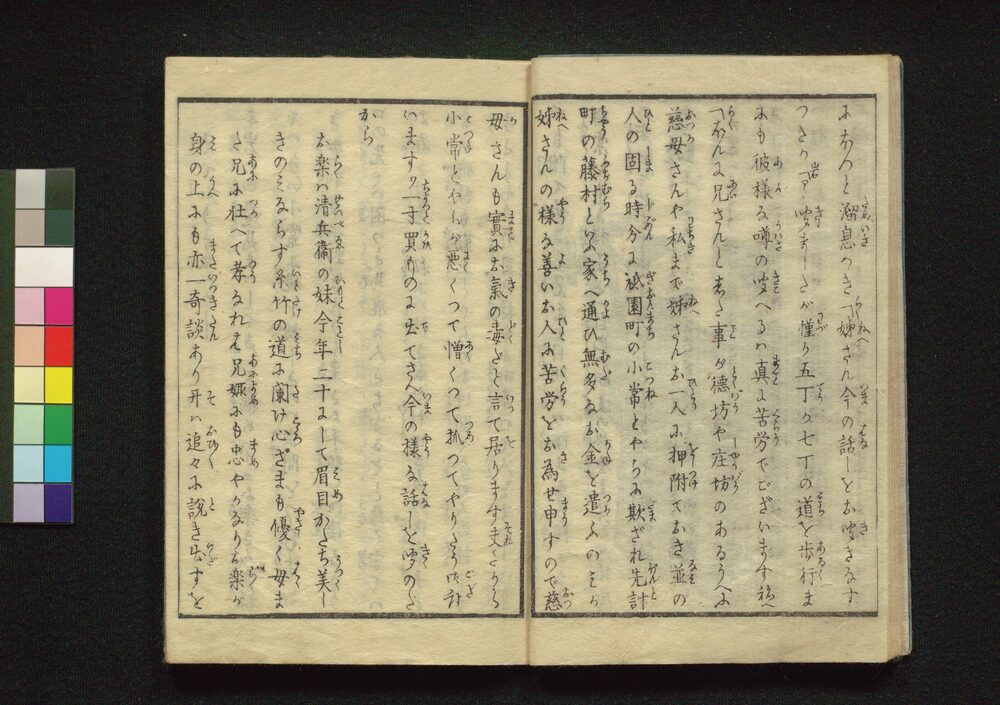 にホツと溜息つき「姉さん今の話しをお聞きなす
つさりヤア聞ましたが僅か五丁か七丁の道を歩行ま
にも彼様な噂の聞へるハ真に苦労でございます䘵へ
「ホンに兄さんとした事が徳坊や庄坊のあるうへに
慈母さんや私まで姉さんお一人に押附ておき並の
人の固る時分に祇園町の小常とやらに欺され先斗
町の藤村といふ家へ通ひ無多なお金を遣ふのミか
姉さんの様な善いお人に苦労をお為せ申すので慈
母さんも實にお氣の毒だと言て居ります夫だから
小常とやらが悪くつて憎くつて抓つてやりたう御座
いますヨ一寸買ものに出てさへ今の様な話しを聞のだ
から
お楽ハ清兵衛の妹今年二十にして眉目かたち美し
きのミならず糸竹の道に闌け心ざまも優く母ま
た兄に仕へて孝なれバ兄嫁にも忠やかなりお楽が
身の上にも亦一奇談あり开ハ追々に説き出すを